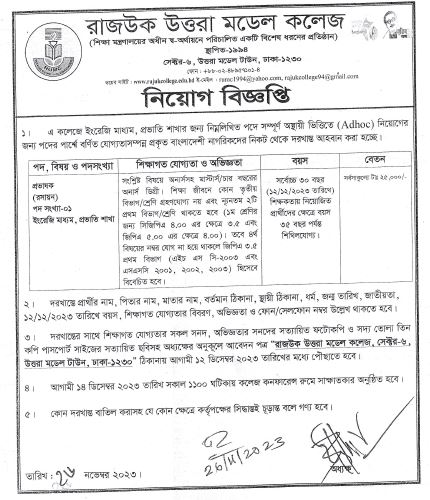 রাজউক উত্তরা মডেল কলেজ
(শিক্ষা মন্ত্রণালয়ের অধীন স্ব-অর্থায়নে পরিচালিত একটি বিশেষ ধরনের প্রতিষ্ঠান)
স্থাপিত-১৯৯৪
সেক্টর-৬, উত্তরা মডেল টাউন, ঢাকা-১২৩০
নিয়োগ বিজ্ঞপ্তি
১। এ কলেজে ইংরেজি মাধ্যম, প্রভাতি শাখার জন্য নিম্নলিখিত পদে সম্পূর্ণ অস্থায়ী ভিত্তিতে (Adhoc) নিয়োগের
জন্য পদের পার্শ্বে বর্ণিত যোগ্যতাসম্পন্ন প্রকৃত বাংলাদেশী নাগরিকদের নিকট থেকে দরখাস্ত আহবান করা হচ্ছে।
পদ, বিষয় ও পদসংখ্যা
শিক্ষাগত যোগ্যতা ও অভিজ্ঞতা
বয়স
বেতন
প্রভাষক
(রসায়ন)
পদ সংখ্যা-০১
ইংরেজি মাধ্যম, প্রভাতি শাখা
সংশ্লিষ্ট বিষয়ে অনার্সসহ মাস্টার্স/চার বছরের
অনার্স ডিগ্রী। শিক্ষা জীবনে কোন তৃতীয়
বিভাগ/শ্রেণি গ্রহণযোগ্য নয় এবং ন্যূনতম ২টি
প্রথম বিভাগ/শ্রেণি থাকতে হবে (১ম শ্রেণির
জন্য সিজিপিএ ৪.০০ এর ক্ষেত্রে ৩.৫ এবং
জিপিএ ৫.০০ এর ক্ষেত্রে ৪.০০)। তবে ৪র্থ
বিষয়ের নম্বর যোগ না হয়ে থাকলে জিপিএ ৩.৫
প্রথম বিভাগ (এইচ এস সি-২০০৩ এবং
এসএসসি ২০০১, ২০০২, ২০০৩) হিসেবে
বিবেচিত হবে।
সর্বোচ্চ ৩০ বছর
(১২/১২/২০২৩ তারিখে)
শিক্ষকতায় নিয়োজিত
প্রার্থীদের ক্ষেত্রে বয়স
৩৫ বছর পর্যন্ত
শিথিলযোগ্য।
সর্বসাকুল্যে টাঃ ২৫,০০০/-
২। দরখাস্তে প্রার্থীর নাম, পিতার নাম, মাতার নাম, বর্তমান ঠিকানা, স্থায়ী ঠিকানা, ধর্ম, জন্ম তারিখ, জাতীয়তা,
১২/১২/২০২৩ তারিখে বয়স, শিক্ষাগত যোগ্যতার বিবরণ, অভিজ্ঞতা ও ফোন/সেলফোন নম্বর উল্লেখ থাকতে হবে।
৩। দরখাস্তের সাথে শিক্ষাগত যোগ্যতার সকল সনদ, অভিজ্ঞতার সনদের সত্যায়িত ফটোকপি ও সদ্য তোলা তিন
কপি পাসপোর্ট সাইজের সত্যায়িত ছবিসহ অধ্যক্ষের অনুকূলে আবেদন পত্র "রাজউক উত্তরা মডেল কলেজ, সেক্টর-৬,
উত্তরা মডেল টাউন, ঢাকা-১২৩০" ঠিকানায় আগামী ১২ ডিসেম্বর ২০২৩ তারিখের মধ্যে পৌছাতে হবে।
৪। আগামী ১৪ ডিসেম্বর ২০২৩ তারিখ সকাল ১১০০ ঘটিকায় কলেজ কনফারেন্স রুমে সাক্ষাতকার অনুষ্ঠিত হবে।
৫। কোন দরখাস্ত বাতিল করাসহ যে কোন ক্ষেত্রে কর্তৃপক্ষের সিদ্ধান্তই চূড়ান্ত বলে গণ্য হবে।
26/11/2023
অধ্যক্ষ
তারিখ: ২৬ নভেম্বর ২০২৩।